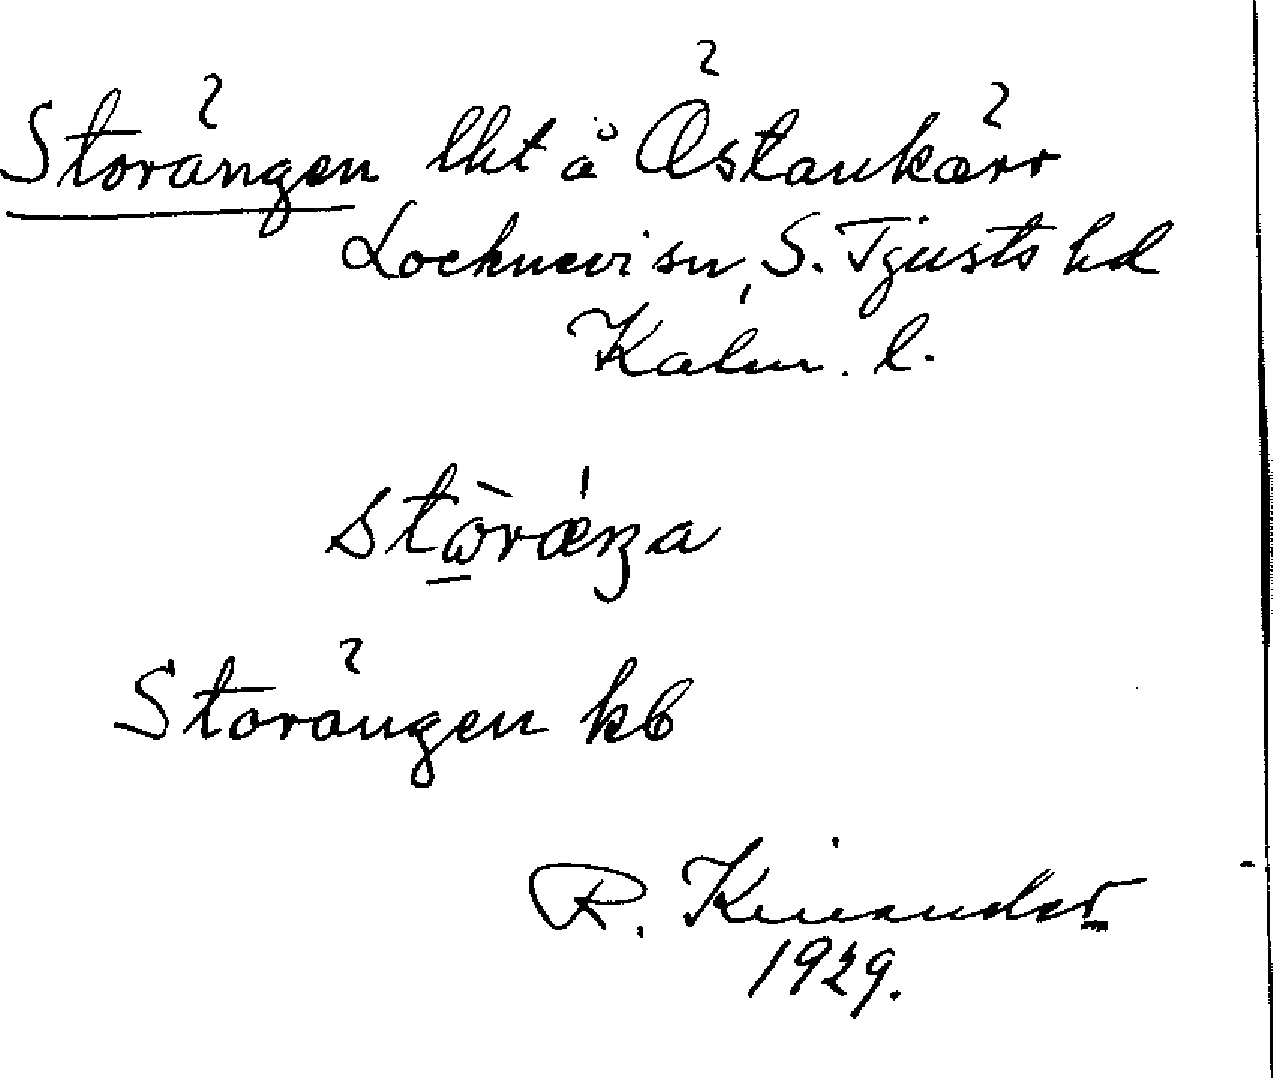 Storängen lht å Östankärr
Locknevi sn, S. Tjusts hd
Kalm. l.
stòræ´ŋa
Storängen kb
R. Kinander
1929.